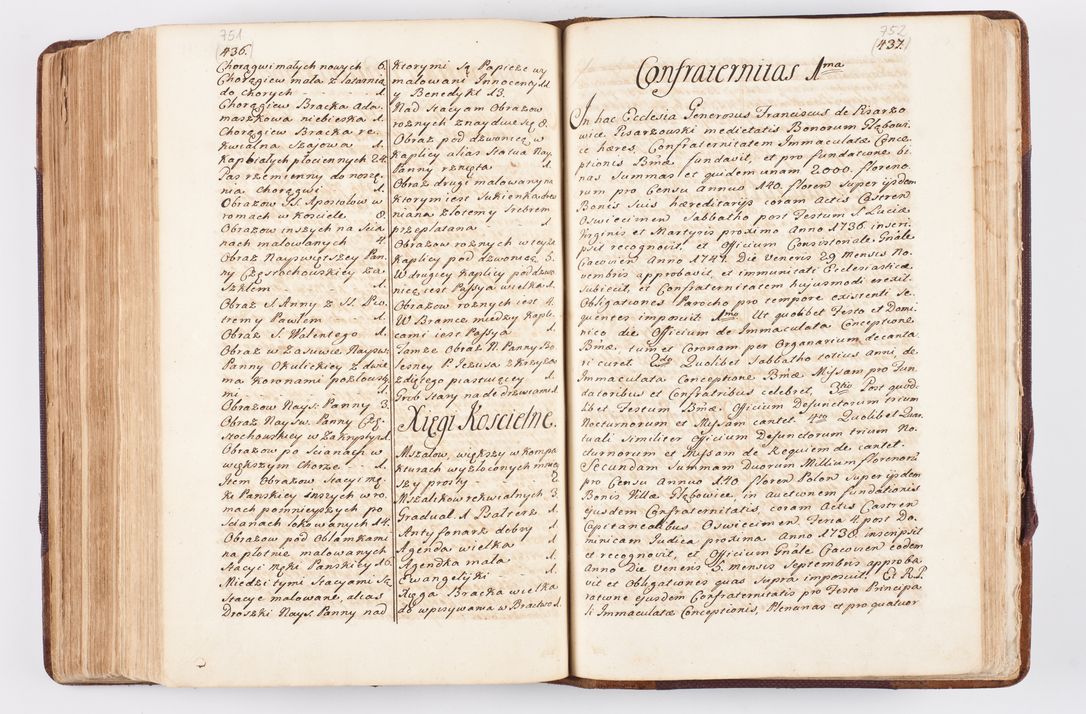 751
436.
Chorągwi małych nowych 6.
Chorągiew mała z latarnią
do chorych 1.
Chorągiew Bracka Ada-
maszkowa niebieska 1.
Chorągiew Bracka re-
kwialna Szajowa 1.
Kap białych płociennych 24.
Pas rzemienny do nosze-
nia chorągwi 1.
Obrazow SS. Apostolow w
romach w Kosciele 8.
Obrazow inszych na Scia-
nach malowanych 4.
Obraz Nayswiętszey Pan-
ny Częstochowskiey za
Szkłem 1.
Obraz S. Anny z SS. Pio-
trem y Pawłem 1.
Obraz S. Walentego 1.
Obraz w Zasuwie Nayswt.
Panny Okulickiey z dwie-
ma Koronami pozłoisty-
mi 1.
Obrazow Nays. Panny 3.
Obraz Naysw. Panny Czę-
stochowskiey w Zakrystyi 1.
Obrazow po Scianach w
większym Chorze 1.
Item Obrazow Stacyi mę-
ki Panskiey snszych w ro-
mach pomnieyszych po
Scianach lokowanych 14.
Obrazow pod Obłamkami
na płotnie malowanych
Stacyi męki Panskiey 16.
Miedzi tymi Stacyami Są
Stacye malowane, alias
Droszki Nays. Panny nad
Ktorymi Są Papieze wy-
malowani Innocenty
y Benedykt 13.
Nad Stacyam Obrazow
roznych znayduie się 8.
Obraz pod dzwonicą w
Kaplicy alias Statua Nay.
Panny rznięta 1.
Obraz drugi malowany na
Ktorym iest Sukienka drew-
niana złotemy Srebrem
przeplatana 1.
Obrazow roznych w teyże
Kaplicy pod dzwonicą 5.
W drugiey Kaplicy pod dzwo-
nicą iest Passya wielka 1.
Obrazow roznych iest 4.
W Bramce między Kapli-
cami iest Passya 1.
Tamze Obraz N. Panny Bo-
lesney P. Jezusa z Krzyża
zdiętego piastuiącey 1.
Grob Stary na de drzwiami 1.
Xięgi Koscielne.
Mszałow, większy w kompa-
kturach wyzłoconych mniey-
szy prosty 2.
Mszalikow rekwialnych 3.
Graduał 1. Psalterz 1.
Antyfonarz dobry 1.
Agenda wielka 1.
Agendka mała 1.
Ewangelyki 1.
Xięga Bracka wielka
do wpisywania w Bractwo 1.
752
437.
Confraternitas 1ma
In hac Ecclesia Generosus Franciscus de Pisarzo-
wice Pisarzowski medietatis Bonorum Głębowi-
ce hæres Confraternitatem Immaculatæ Conce-
ptionis Bmæ fundavit, et pro fundatione bi-
nas Summas et quidem unam 2000. floreno-
rum pro Censu Annuo 140. floren Super ijsdem
Bonis Suis hæreditarijs coram Actis Castren
Oswiecimen Sabbatho post Festum S. Luciæ
Virginis et Martyris proximo Anno 1736 inscri-
psit recognovit, et Officium Consistoriale Gnale
Cracovien Anno 1741. Die Veneris 29 Mensis No-
vembris approbavit, et immunitati Ecclesiasticæ
Subiecit, et Confraternitatem hujusmodi erexit.
Obligationes Parocho pro tempore existenti Se-
quentes imposuit 1mo Ut quolibet Festo et Domi-
nico die Officium de Immaculata Conceptione
Bmæ tum et Coronam per Organarium decanta-
ri curet 2do Quolibet Sabbatho totius Anni, de
Immaculata Conceptione Bmæ Missam pro Fun-
datoribus et Confratribus celebret, 3tio Post quod-
libet Festum Bmæ Officium Defunctorum trium
Nocturnorum et Missam cantet. 4to Quolibet Quar-
tuali Similiter Officium Defunctorum trium No-
cturnorum et Missam de Requiem de cantet.
Secundam Summam Duorum Millium florenorum
pro Censu Annuo 140 floren Polon Super ijsdem
Bonis Villæ Głębowice, in auctionem fundationis
ejusdem Confraternitatis, coram Actis Castren
Capitanealibus Oswiecimen Feria 4 post Do-
minicam Iudica proxima Anno 1738 inscripsit
et recognovit, et Officium Gnale Cracovien eodem
Anno Die Veneris 5. mensis Septembris approba-
vit et Obligationes quas Supra imposuit. Et R. P.
ratione ejusdem Confraternitatis pro Festo Principa-
li Immaculatæ Conceptionis, Plenarias et pro quatuor